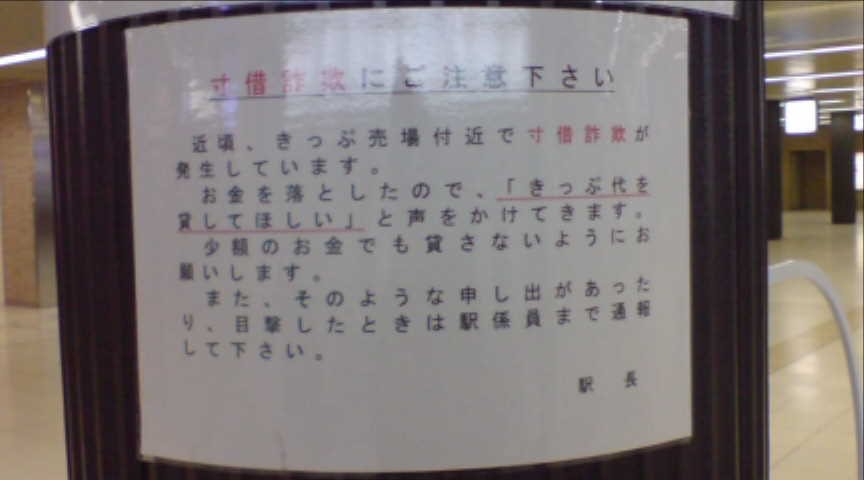 寸借詐欺にご注意下さい
近頃、きっぷ売場付近で寸借詐欺が
発生しています。
お金を落としたので、「きっぷ代を
貸してほしい」と声をかけてきます。
少額のお金でも貸さないようにお
願いします。
また、そのような申し出があった
り、目撃したときは駅係員まで通報
して下さい。
駅長